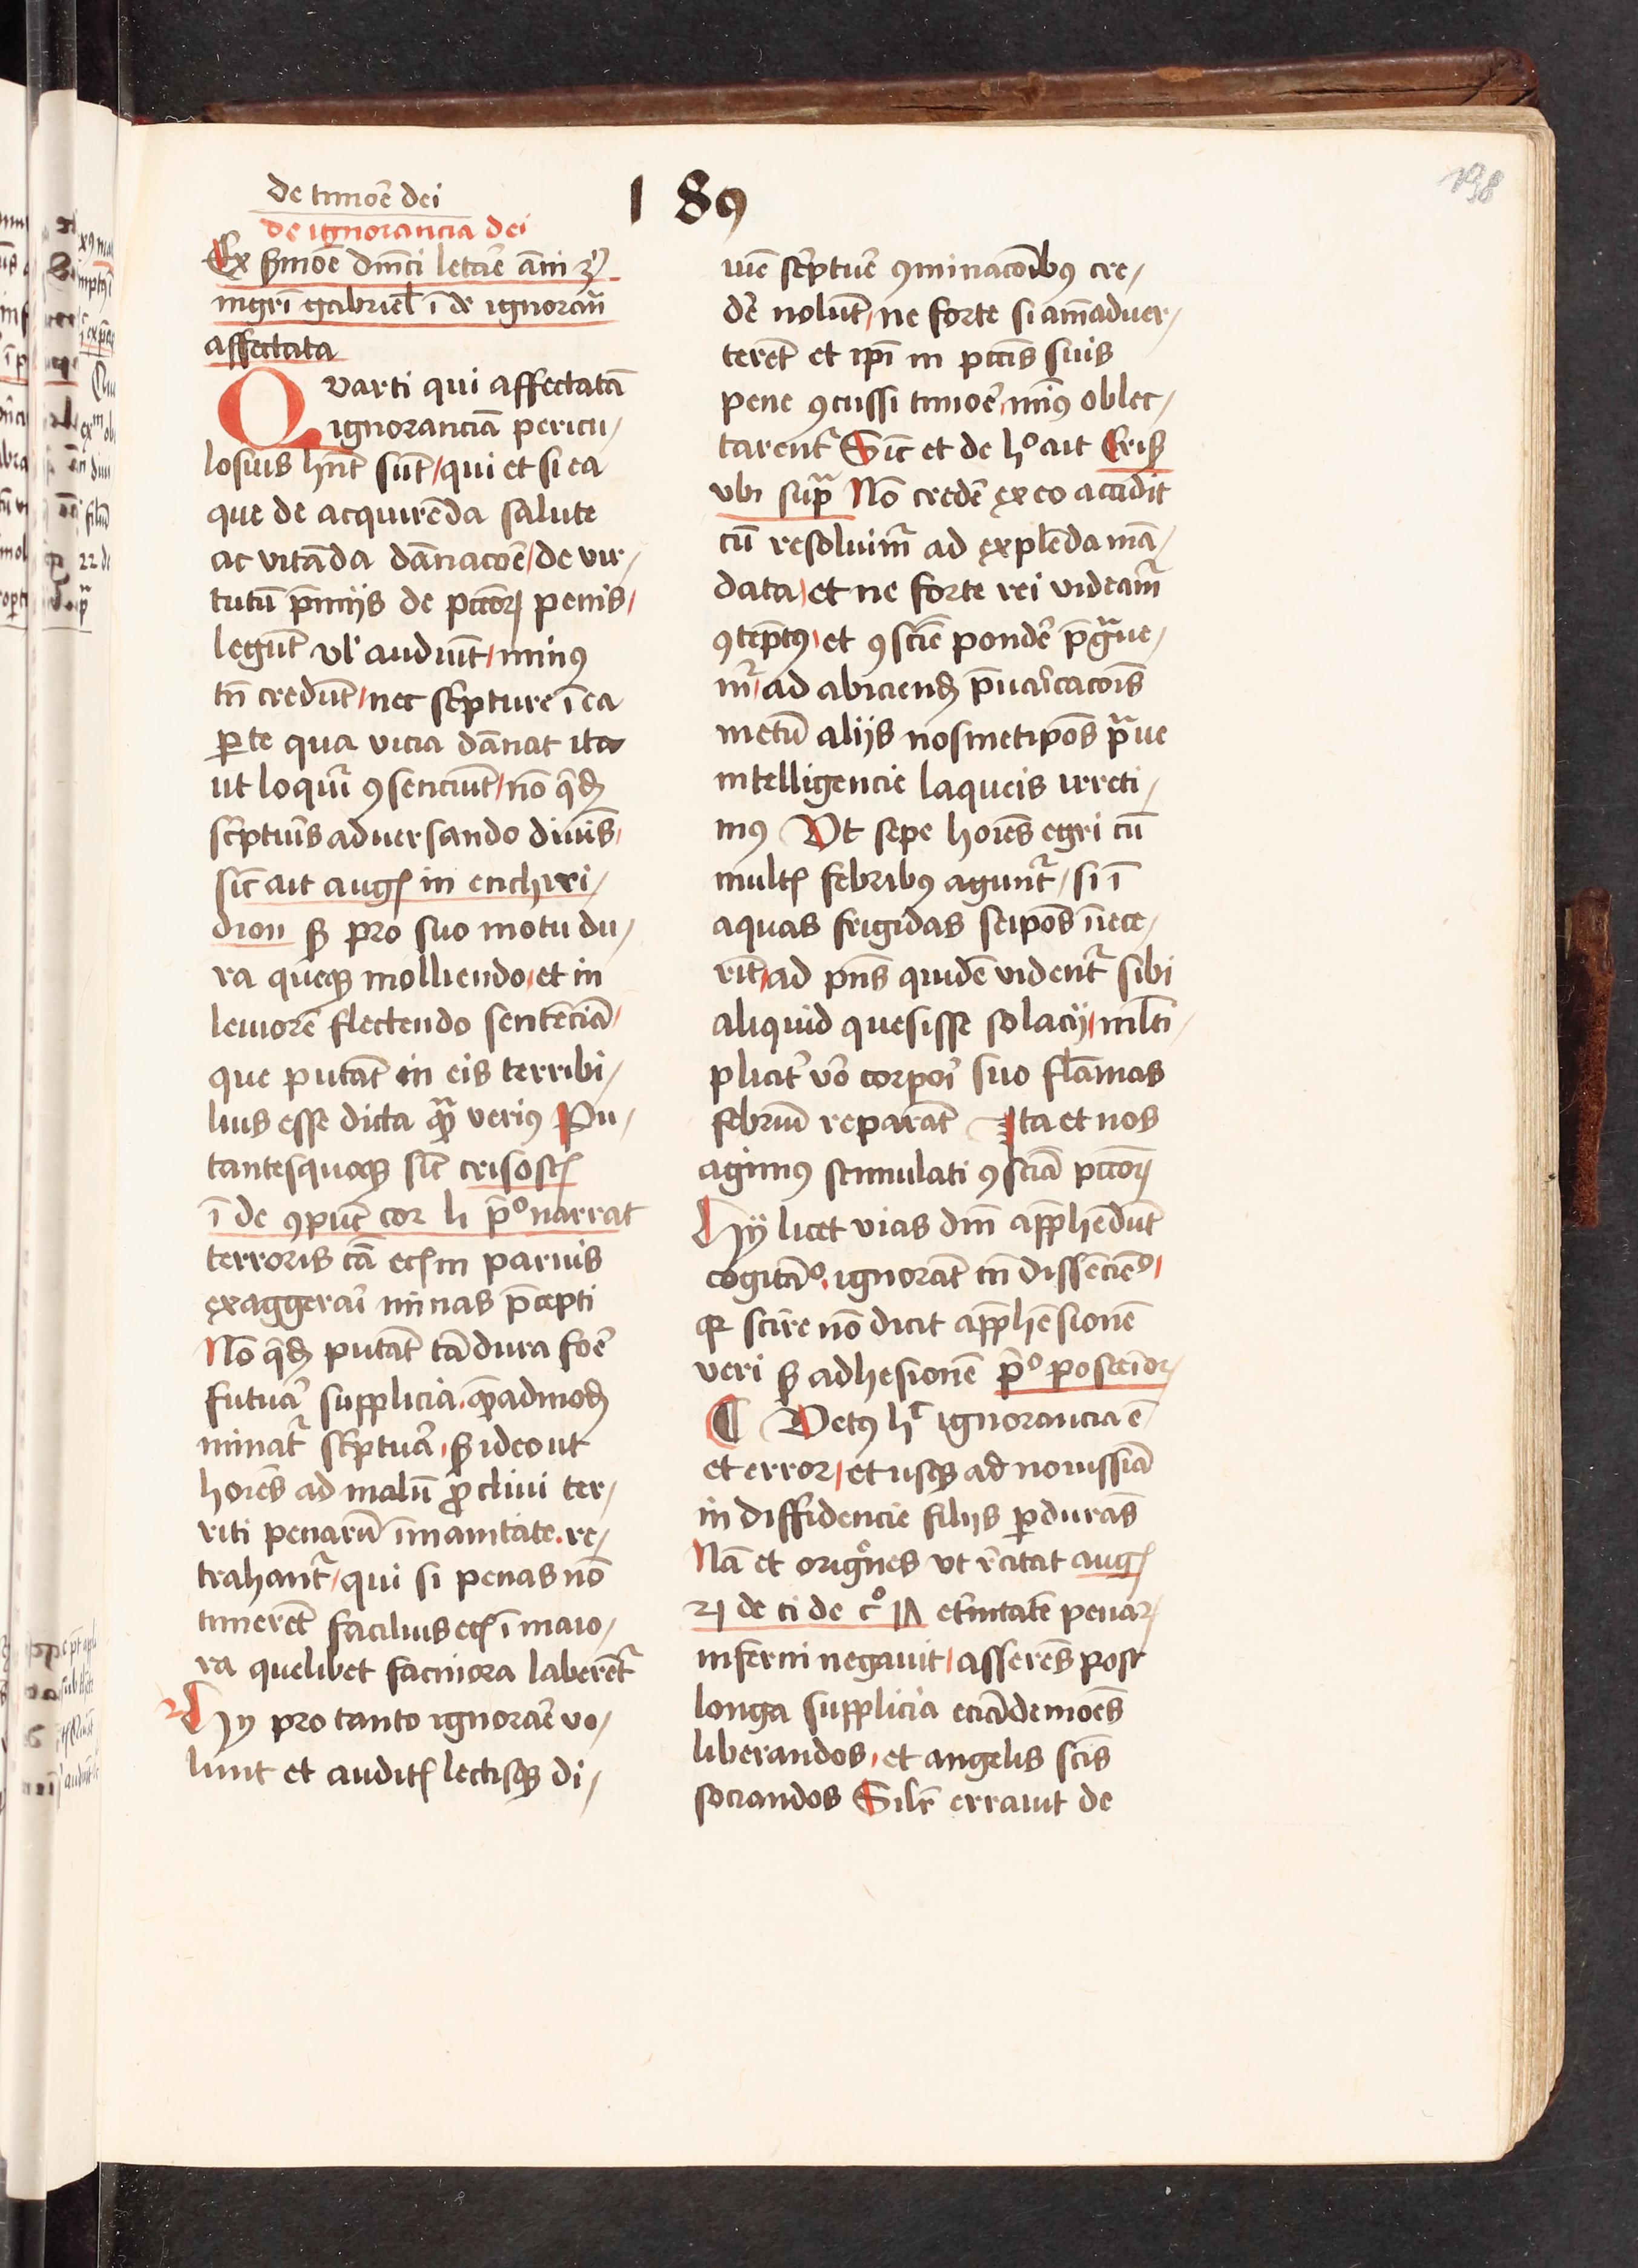 de timoē dei
189
198
de ignorancia dei
Ex ẜmōe dm̄ci letaē āni
mgr̄i gabriel̄ ī de ignorān
affectata
Quarti qui affectatā
ignoranciā pericu/
losius hn̄t sūt/ qui et si ea
que de acquirēda salute
ac vitāda dānacōe/ de vir/
tutū p̄mijs de pctōꝝ penis/
legūt vl' audiūt/ minꝰ
tn̄ credūt/ nec sc̄pture ī ea
ꝑte qua vicia dānat ita
ut loquit̄ ꝯsenciūt/ nō q̄dē
sc̄ptuīs aduersando diuīs/
sic̄ ait augꝭ in enchiri/
dion ẜ pro suo motu du/
ra queqꝫ molliendo/ et in
leuiorē flectendo sentēciā/
que putāt in eis terribi/
lius esse dicta qꝫ̄ verius Pu/
tantesquoqꝫ sic̄ crisostꝭ
ī de ꝯpūt cor li p̄º narrat
terroris cā ecꝭ in paruis
exaggerai minas p̄cepti
Nō q̄dē putāt tā dura foē
futuā supplicia. qͫadmodū
minat̄ sc̄ptuā/ ẜ ideo ut
hoīes ad malū ꝓcliui ter/
riti penarū īmanitate. re/
trahant̄/ qui si penas nō
timerēt facilius ecꝭ ī maio/
ra quelibet facinora laberēt̄
Hy pro tanto ignoraē vo/
lunt et auditꝭ lectisqꝫ di/
uīe sc̄ptuē ꝯminacōibꝰ cre/
dē nolūt/ ne forte si aīaduer/
terēt et ip̄i in pctīs suis
pene ꝯcussi timoē/ minꝰ oblec/
tarent̄ Sic̄ et de hº ait Crisꝭ
vbi supͣ Nō credē ex eo accidit
cū resoluim̄ ad explēda mā/
data/ et ne forte rei videam̄
ꝯtēptꝰ/ et ꝯsciē pondē p̄gͣue/
m̄/ ad abiciendū p̄uaīcacōis
metū alijs nosmetip̄os pͣue
intelligencie laqueis irreti/
mꝰ Vt sepe hoīes egri cū
multꝭ febribꝰ agunt̄/ si ī
aquas frigidas seip̄os īiece/
rīt/ ad pn̄s quidē vident̄ sibi
aliquid quesisse solacij/ ml̄ti/
plicit̄ vō corpoī suo flāmas
febriū reparāt Ita et nos
agimꝰ stimulati ꝯsciā pctōꝝ
Hij licet vias dn̄i app̄hēdūt
cogitāº. ignorāt tn̄ dissēciēº/
qꝛ scire nō dicit app̄hēsionē
veri ẜ adhesionē p̄º posteīoꝝ
¶ Vetꝰ hͨ ignorancia ē
et error/ et usqꝫ ad nouissiā
in diffidencie filijs ꝑdurās
Nā et origēnes vt rēcitat augꝭ
21 de ci de cº 17 etn̄itatē penaꝝ
inferni negauit/ asserēs post
longa supplicia eciā demoēs
liberandos/ et angelis scīs
sociandos Silr̄ errauit de